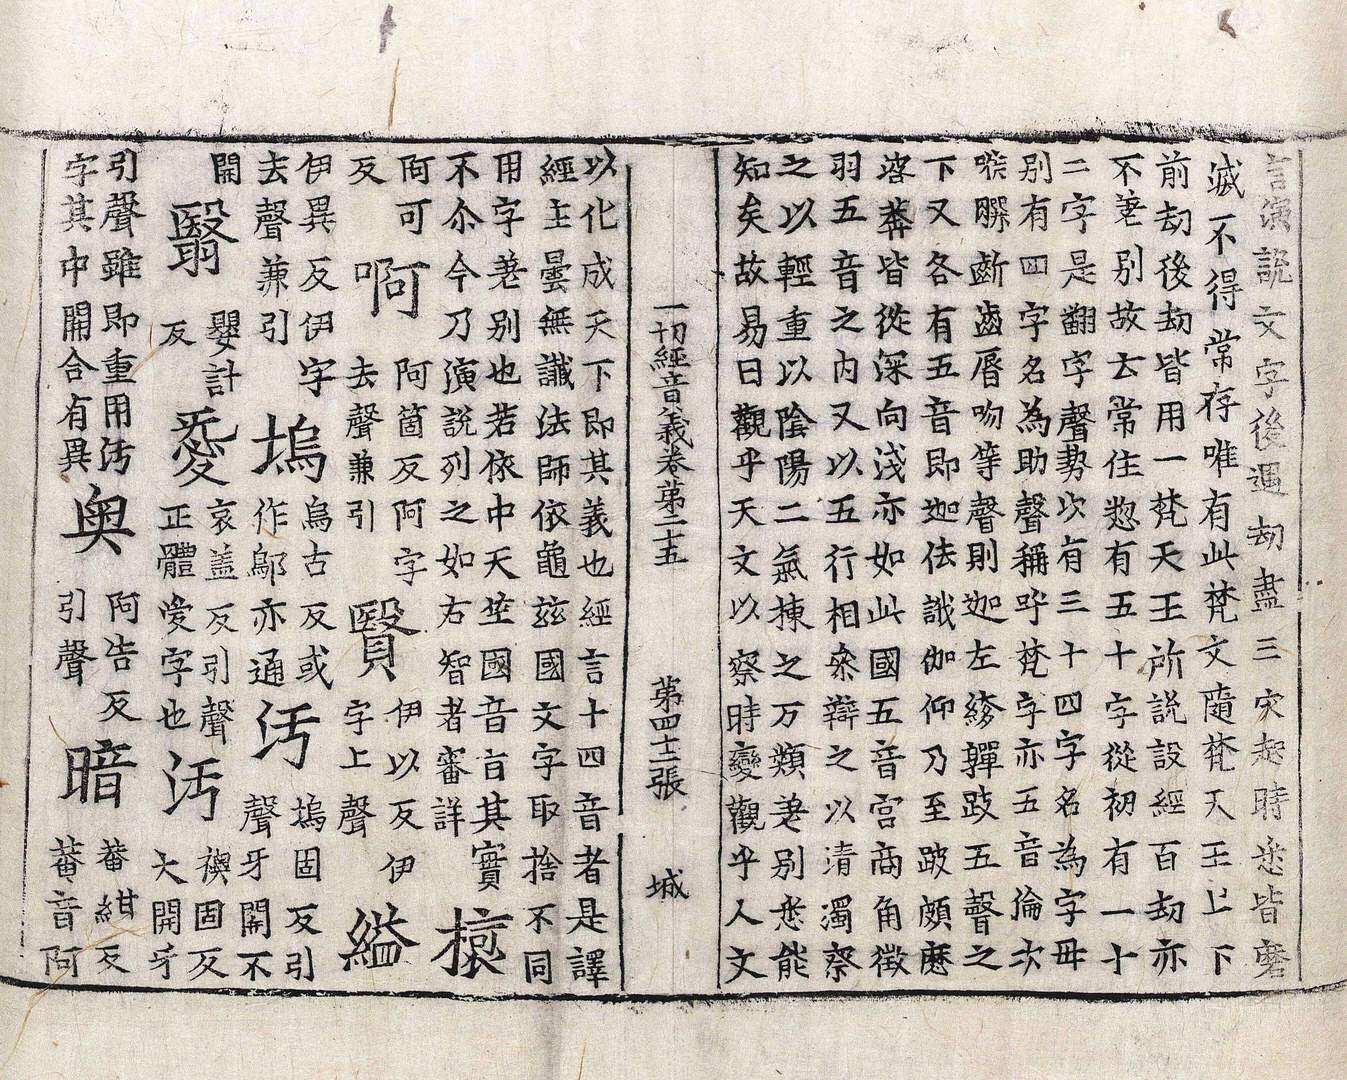 言演說文字後遇劫盡三灾起時悉皆磨
滅不得常存唯有此梵文隨梵天王上下
前劫後劫皆用一梵天王所說設經百劫亦
不差別故云常住惣有五十字從初有一十
二字是翻字聲勢次有三十四字名為字母
別有四字名為助聲稱呼梵字亦五音倫次
喉腭齗齒脣吻等聲則迦左絝亸跛五聲之
下又各有五音即迦佉誐伽仰乃至跛頗麽
莽皆從深向淺亦如此國五音宮商角徵
羽五音之內又以五行相叅辯之以清濁察
之以輕重以陰陽二氣揀之万類差別悉能
知矣故易曰觀乎天文以察時變觀乎人文
一切經音義卷第二十五 第四十二張 城
以化成天下即其義也經言十四音者是譯
經主曇無讖法師依龜茲國文字取捨不同
用字差別也若依中天竺國音旨其實
不尒今乃演說列之如右智者審詳
阿可反 啊 阿箇反阿字去聲兼引 伊以反伊字上聲 縊
伊異反伊字去聲兼引 塢 烏古反或作鄔亦通 污 塢固反引聲牙開不
開 翳 嬰計反 愛 哀蓋反引聲正體㤅字也 污 襖固反大開牙
引聲雖即重用污字其中開合有異 奧 阿告反引聲 暗 菴紺反菴音阿